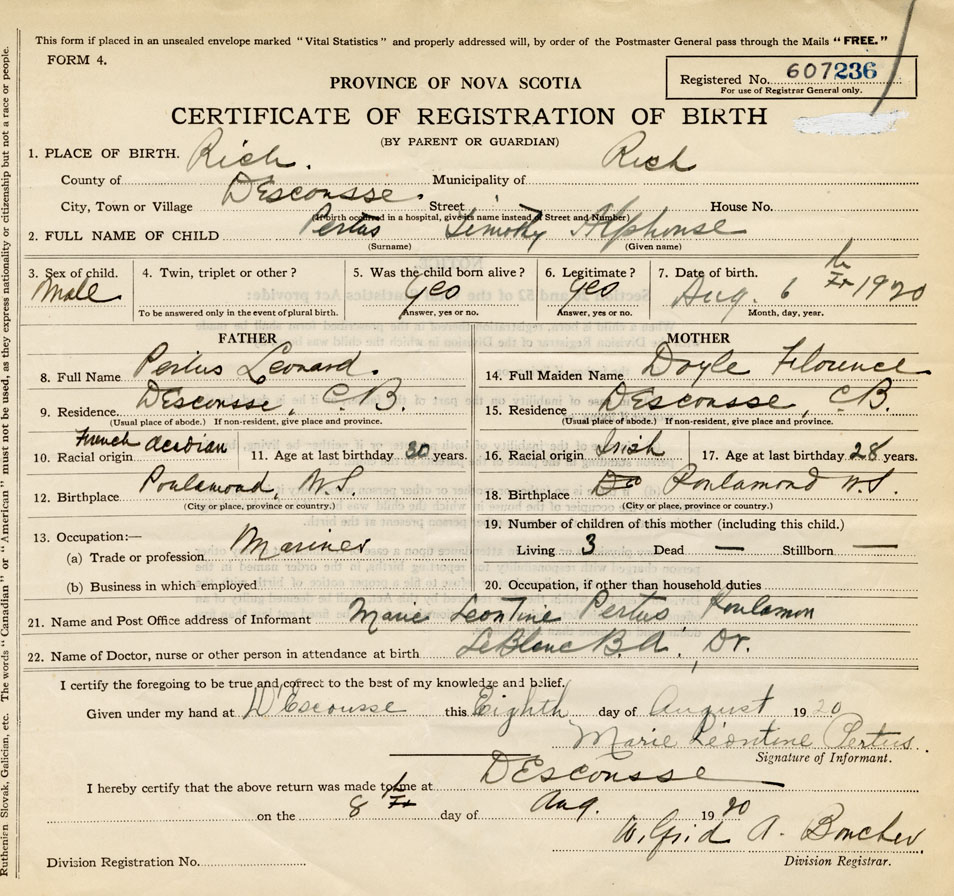 This form if placed in an unsealed envelope marked "Vital Statistics" and properly addressed will, by order of the Postmaster General pass through the Mails "FREE."
FORM 4.
PROVINCE OF NOVA SCOTIA
Registered No. 607236
For use of Registrar General only.
CERTIFICATE OF REGISTRATION OF BIRTH
(BY PARENT OR GUARDIAN)
1. PLACE OF BIRTH.
County of Rich. Municipality of Rich
City, Town or Village DEscousse. Street House No.
(If birth occurred in a hospital, give its name instead of Street and Number)
2. FULL NAME OF CHILD Pertus Timothy Alphonse
(Surname) (Given name)
3. Sex of child. 4. Twin, triplet or other? 5. Was the child born alive? 6. Legitimate? 7. Date of birth.
Male Yes Yes Aug. 6 1920
To be answered only in the event of plural birth. Answer, yes or no. Answer, yes or no. Month, day, year.
FATHER MOTHER
8. Full Name Pertus Leonard. 14. Full Maiden Name Doyle Florence
9. Residence. DEscousse, C.B. 15. Residence DEscousse, C.B.
(Usual place of abode.) If non-resident, give place and province. (Usual place of abode.) If non-resident, give place and province.
10. Racial origin French Acadian 11. Age at last birthday 30 years. 16. Racial origin Irish 17. Age at last birthday 28 years.
12. Birthplace Poulamond, N.S. 18. Birthplace Do Poulamond N.S.
(City or place, province or country.) (City or place, province or country.)
13. Occupation:— 19. Number of children of this mother (including this child.)
(a) Trade or profession Mariner Living 3 Dead — Stillborn —
(b) Business in which employed 20. Occupation, if other than household duties
21. Name and Post Office address of Informant Marie Leontine Pertus, Poulamon
22. Name of Doctor, nurse or other person in attendance at birth LeBlanc B.A., Dr.
I certify the foregoing to be true and correct to the best of my knowledge and belief.
Given under my hand at D'Escousse this Eighth day of August 1920
Marie Léontine Pertus.
Signature of Informant.
I hereby certify that the above return was made to me at DEscousse
on the 8 day of Aug. 1920
Wilfrid A. Boucher
Division Registration No. Division Registrar.
Ruthenien Slovak, Galician, etc. The words "Canadian" or "American" must not be used, as they express nationality or citizenship but not a race or people.